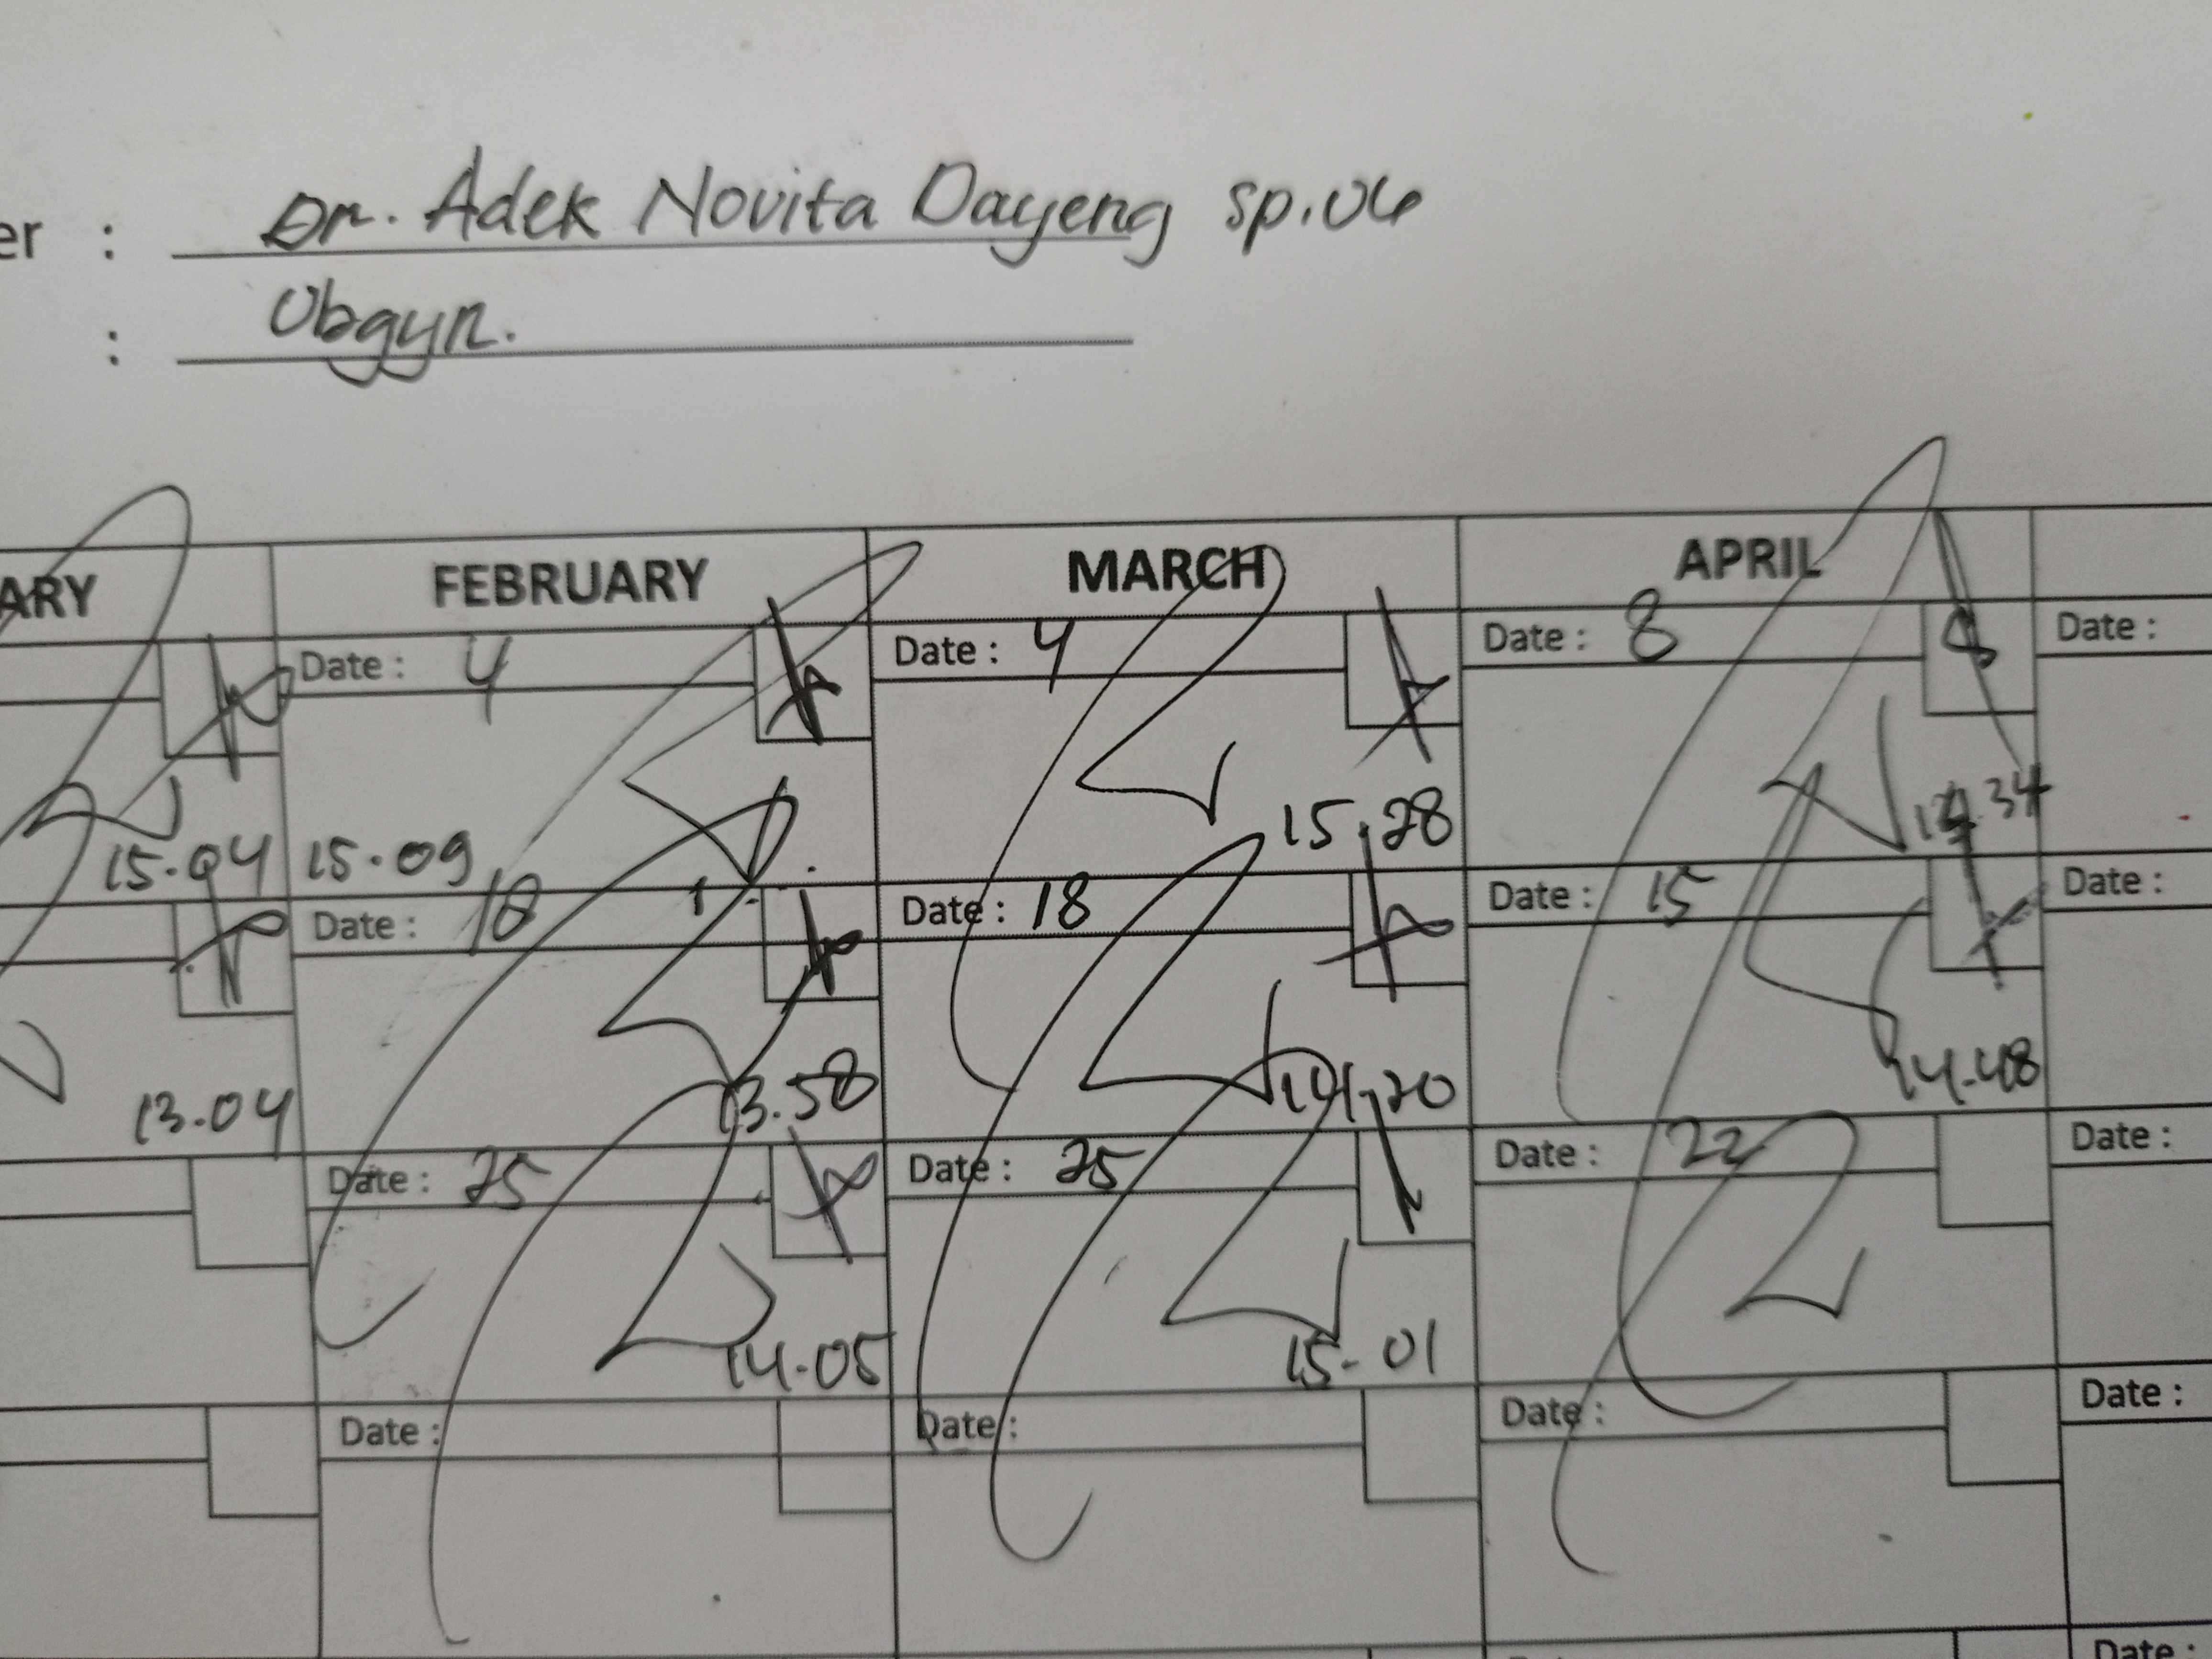 er : Dr. Adek Novita Dayeng sp.OG
: Obgyn.
ARY FEBRUARY MARCH APRIL
Date : 4 Date : 4 Date : 8 Date :
15.04 15.09 15.28 34
Date : 18 Date : 18 Date : 15 Date :
13.04 13.58 14.20 14.48
Date : 25 Date : 25 Date : 22 Date :
14.05 15-01
Date : Date : Date : Date :
Date :